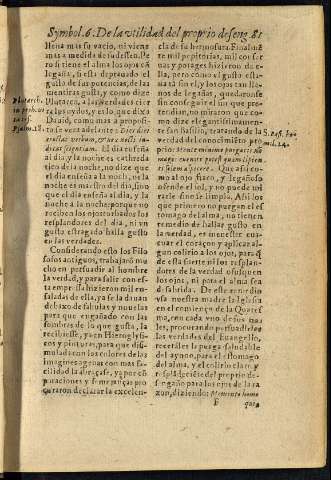 Symbol. 6. De la vtilidad del proprio deseng. 81
llena mas su vacio, ni viene
mas a medida de su deseo. Pe
ro si tiene el alma los ojos cõ
legaña, si esta deprauado el
gusto de sus potencias, de las
mentiras gusta, y a las clari
dades de las verdades cier
ra los oydos, y es lo, que dixo
Dauid, como mas a proposi-
to se verà adelante: Dies diei
eructat verbum, & nox nocti in-
dicat scientiam. El dia enseña
al dia, y la noche es cathreda
tico de la noche; no dize
que el dia enseña a la noch, ni la
noche es maestro del dia, sino
que el dia enseña al dia, y la
noche a la noche: porque no
reciben los ojos turbados los
resplandores del dia, ni vn
gusto estragado halla gusto
en las verdades.
Considerando esto los Filo
sofos antiguos, trabajarõ mu
cho en persuadir al hombre
la verdad, y para salir con es-
ta empressa hizieron mil en-
saladas della, ya se la dauan
debaxo de fabulas y nouelas
para que engañado con las
sombras de lo que gusta, la
recibiesse, ya en Hieroglyfi-
cos y pinturas, para que dissi-
mulada con los colores de las
imagines agenas con mas fa-
cilidad la abraçasse, ya por cõ
paraciones y semejanças pro
curaron declarar la excelen-
Plutarch.
Psalm. 18.
cia de su hermosura. Finalmẽ
te mil pepitorias, mil conser
uas y potages hizieron de
ella. Pero como el gusto esta
ua sin el, y los ojos tan llenos
de legañas, quedaronse
sin conseguir el fin que pre-
tendian, no miraron que co-
mo dize elegantissimamente
san Basilio, tratando de la
verdad del conocimiento pro
prio:
Que assi co-
mo al ojo flaco, y legañoso
ofende el sol, y no puede mi
rarle sino se limpia. Assi los
que primero no purgan el es
tomago del alma, no tienen
remedio de hallar gusto en
la verdad, es menester eua-
cuar el coraçon y aplicar al-
gun colirio a los ojos, para q̃
de essa suerte ni los resplan-
dores de la verdad ofusquen
los ojos, ni para el alma sea
desabrida. De este remedio
vsa nuestra madre la Iglesia
en el comienço de la Quares
ma, con cada vno de nos-
las verdades del Euangelio,
recetales la purga saludable
del ayuno, para el estomago
del alma, y el colirio claro, y
resplandeciẽte del proprio de-
sengaño para los ojos de la ra
zon, diziendo: Memento homo
F
quia